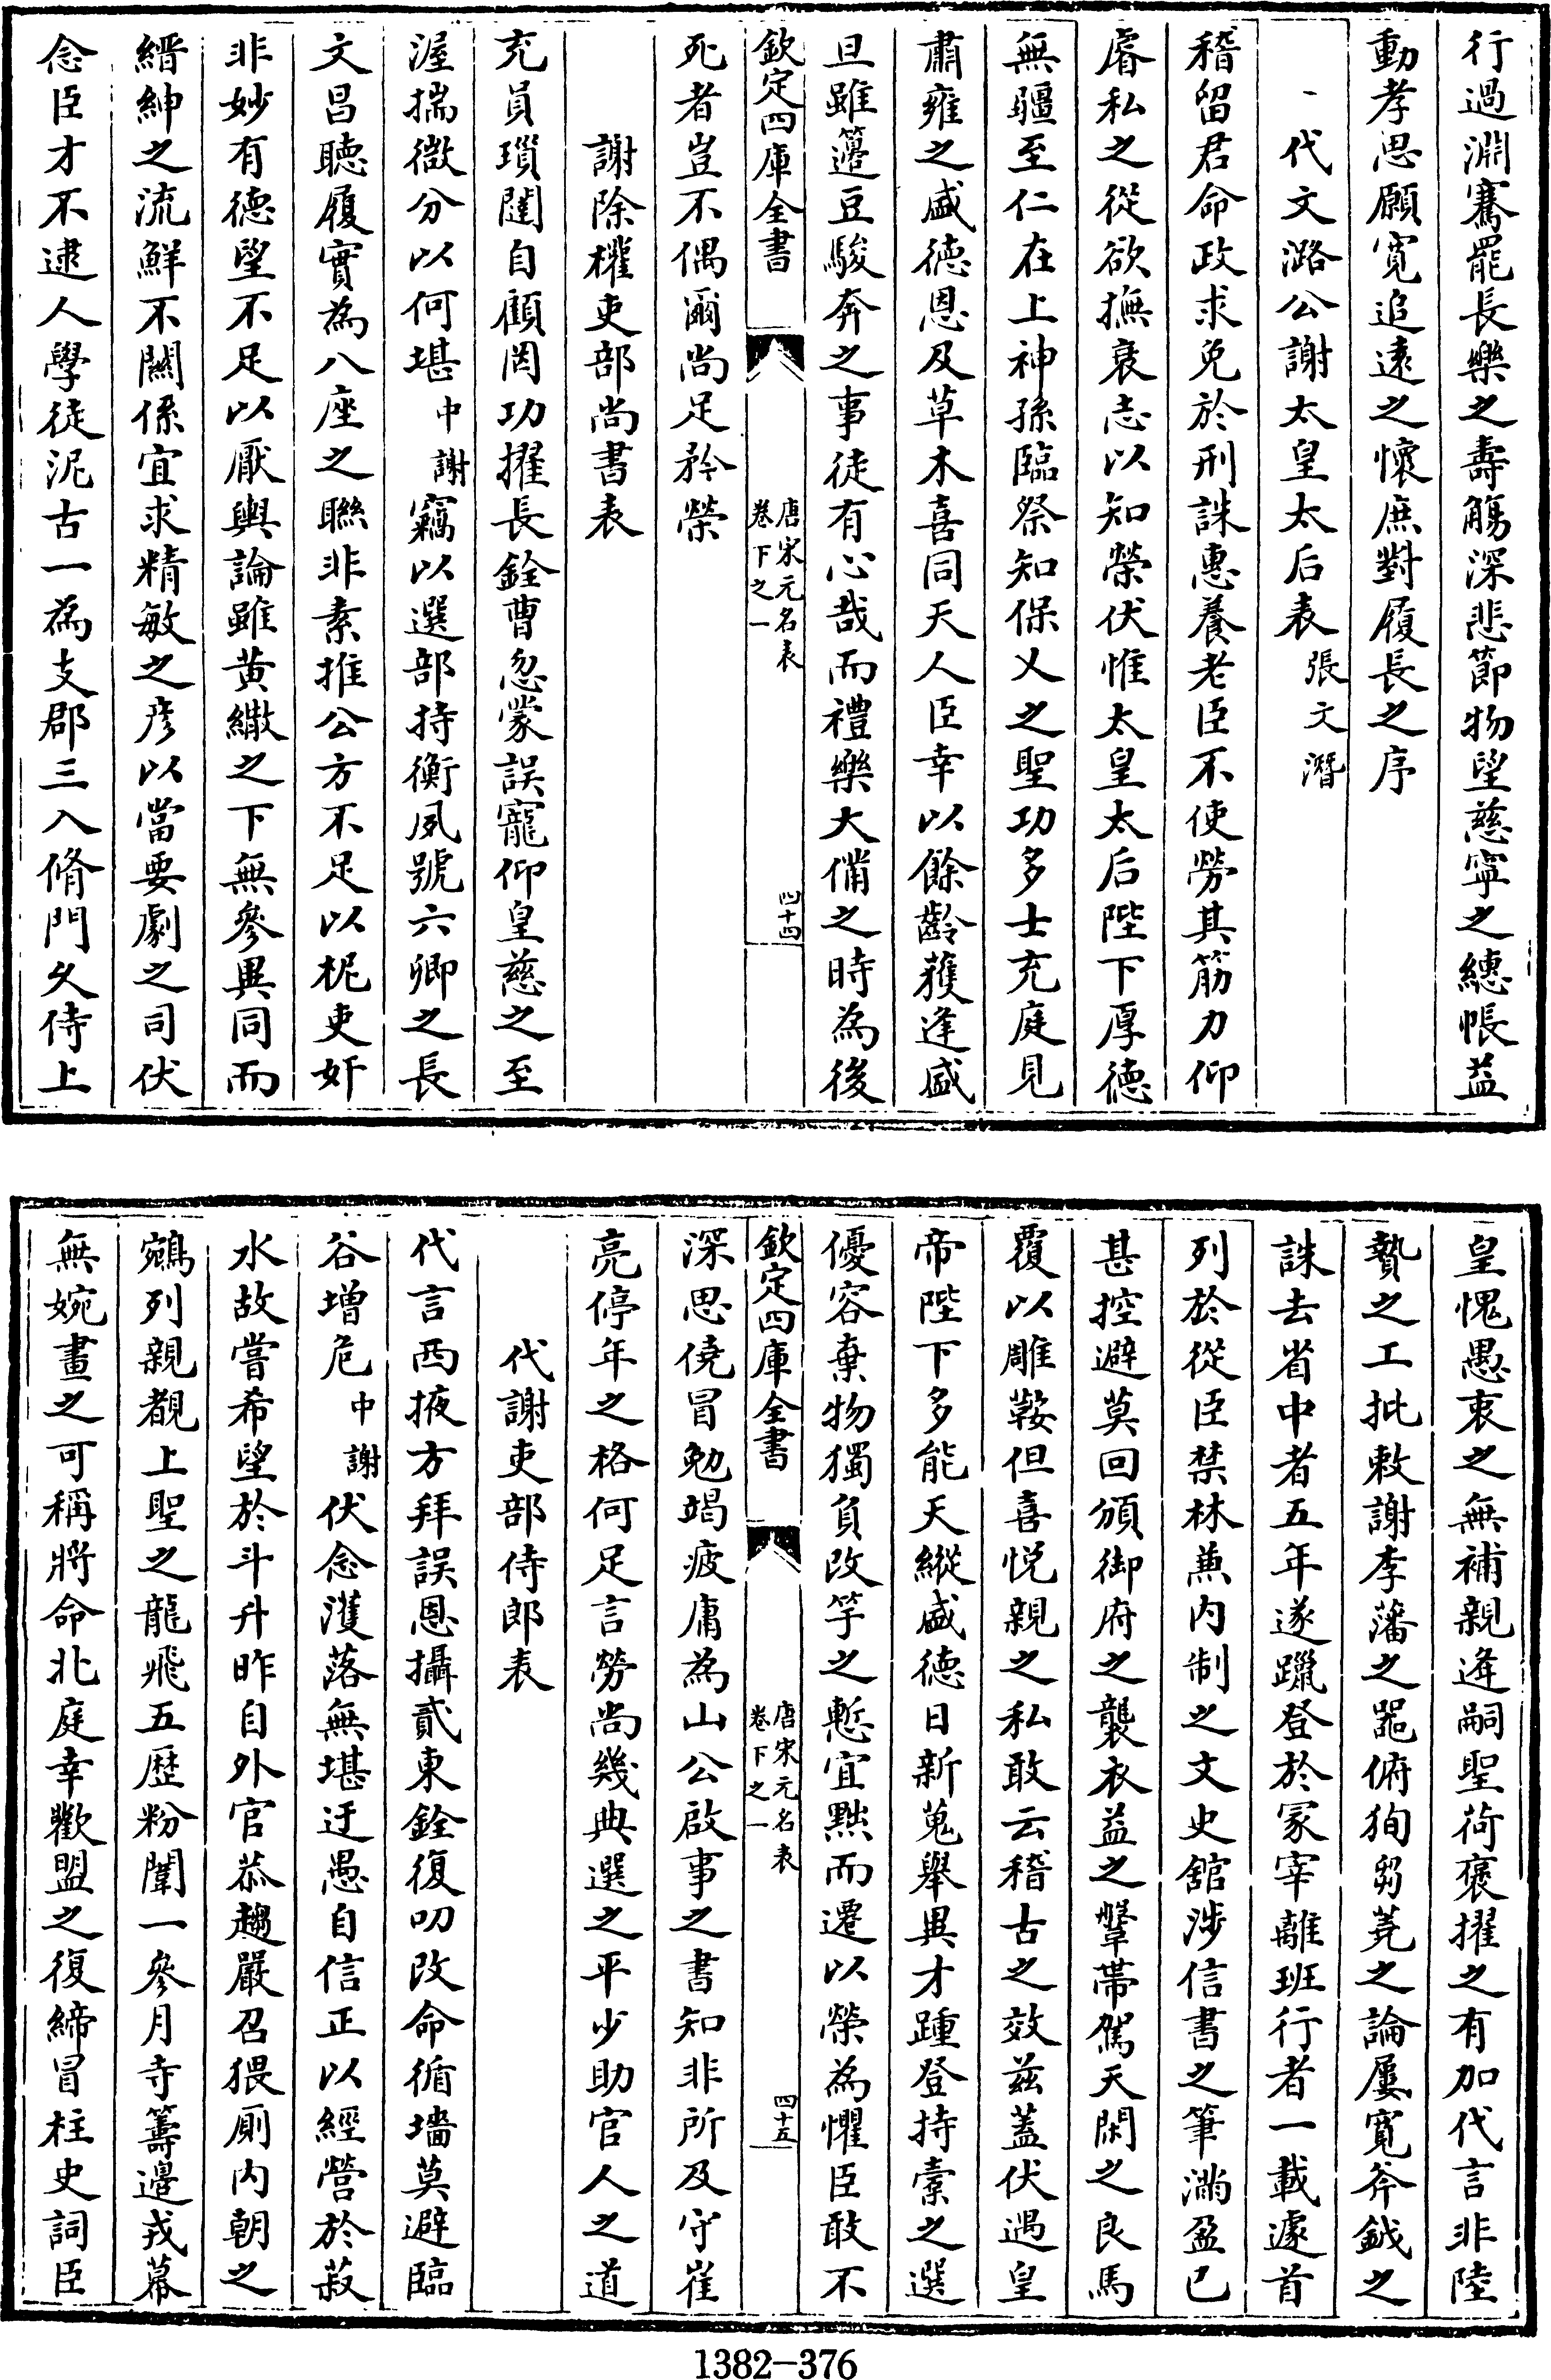 行過淵騫罷長樂之壽觴深悲節物望慈寧之繐帳益
動孝思願寛追遠之懷庶對履長之序
代文潞公謝太皇太后表 張文潛
稽留君命政求免於刑誅惠養老臣不使勞其筋力仰
睿私之從欲撫衰志以知榮伏惟太皇太后陛下厚德
無疆至仁在上神孫臨祭知保乂之聖功多士充庭見
肅雍之盛德恩及草木喜同天人臣幸以餘齡獲逢盛
旦雖籩豆駿奔之事徒有心哉而禮樂大備之時為後
欽定四庫全書 唐宋元名表 卷下之一 四十四
死者豈不偶爾尚足矜榮
謝除權吏部尚書表
充員瑣闥自顧罔功擢長銓曹忽蒙誤寵仰皇慈之至
渥揣微分以何堪中謝竊以選部持衡夙號六卿之長
文昌聽履實為八座之聯非素推公方不足以柅吏奸
非妙有德望不足以厭輿論雖黄繳之下無參異同而
縉紳之流鮮不關係宜求精敏之彦以當要劇之司伏
念臣才不逮人學徒泥古一為支郡三入脩門久侍上
皇愧愚衷之無補親逢嗣聖荷褒擢之有加代言非陸
贄之工批敕謝李藩之器俯狥芻蕘之論屢寛斧鉞之
誅去省中者五年遂躐登於冢宰離班行者一載遽首
列於從臣禁林兼内制之文史舘涉信書之筆滿盈已
甚控避莫回頒御府之襲衣益之鞶帶駕天閑之良馬
覆以雕鞍但喜悦親之私敢云稽古之效兹蓋伏遇皇
帝陛下多能天縱盛德日新蒐舉異才踵登持橐之選
優容棄物獨負改竽之慙宜黜而遷以榮為懼臣敢不
欽定四庫全書 唐宋元名表 卷下之一 四十五
深思僥冒勉竭疲庸為山公啟事之書知非所及守崔
亮停年之格何足言勞尚幾典選之平少助官人之道
代謝吏部侍郎表
代言西掖方拜誤恩攝貳東銓復叨改命循墻莫避臨
谷增危中謝伏念濩落無堪迂愚自信正以經營於菽
水故嘗希望於斗升昨自外官恭趨嚴召猥厠内朝之
鵷列親覩上聖之龍飛五歴粉闈一參月寺籌邊戎幕
無婉畫之可稱將命北庭幸歡盟之復締冒柱史詞臣
1382-376